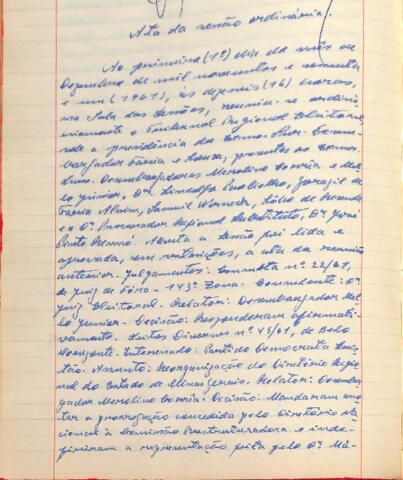 Ata da sessão ordinária.
Ao primeiro (1º) dia do mês de
Dezembro de mil novecentos e sessenta
e um (1961), às dezesseis (16) horas,
na Sala das Sessões, reuniu-se ordina
riamente o Tribunal Regional Eleitoral,
sob a presidência do Exmo. Snr. Desem-
bargador Faria e Sousa, presentes os Exmos.
Snrs. Desembargadores Merolino Corrêa e Mel-
lo Júnior, Drs. Lindolfo Paoliello,
Faria Alvim, Samuel Werneck, Hélio de Rezende
e o Dr. Procurador Regional Substituto, Dr. José
Pinto Renó. Aberta a sessão foi lida e
aprovada, sem restrições, a ata da reunião
anterior. Julgamentos: Consulta nº 22/61,
de Juiz de Fora - 143ª Zona. Consulente: O
Juiz Eleitoral. Relator: Desembargador Mel-
lo Júnior. Decisão: Responderam afirmati-
vamente. Autos Diversos nº 45/61, de Belo
Horizonte. Interessado: Partido Democrata Cris-
tão. Assunto: Reorganização do Diretório Regio-
nal do Estado de Minas Gerais. Relator: Desembar-
gador Merolino Corrêa. Decisão: Mandaram ano-
tar a prorrogação concedida pelo Diretório Na-
cional à Comissão Reestruturadora e inde-
firiram a representação feita pelo Dr. Má-